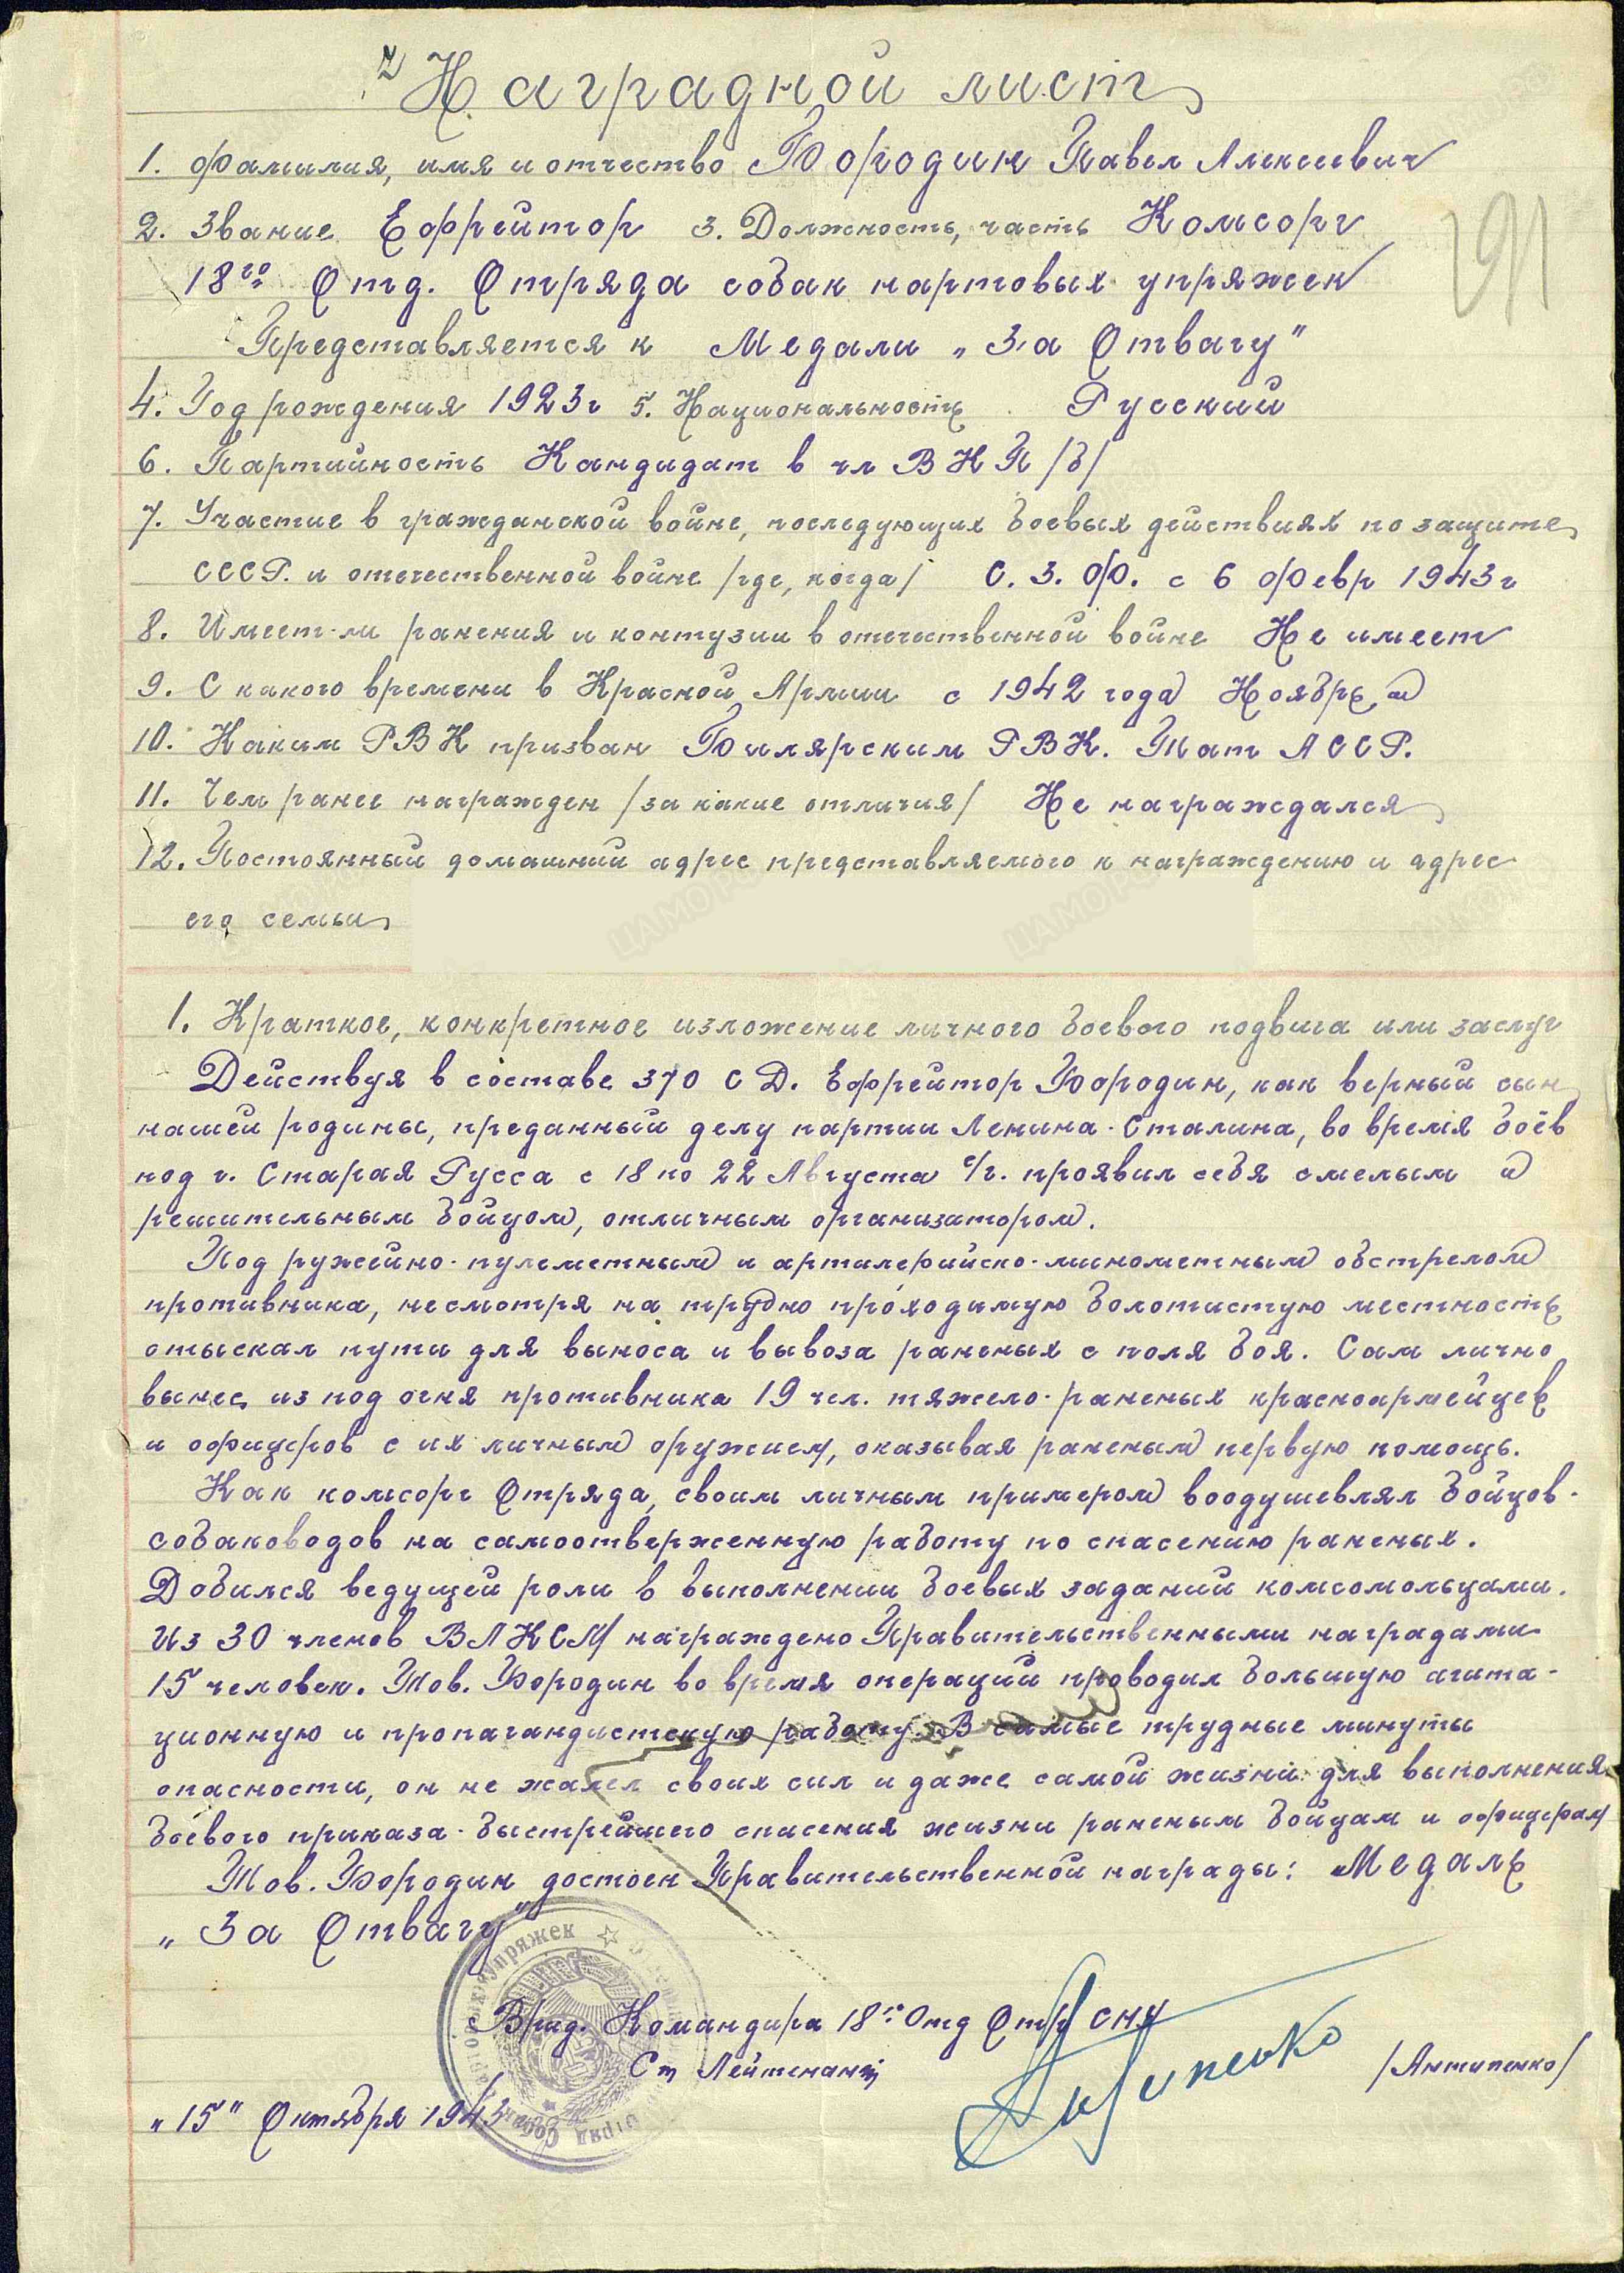 Наградной лист
1. Фамилия, имя и отчество Бородин Павел Алексеевич
2. Звание Ефрейтор 3. Должность, часть Комсорг
18го Отд. Отряда собак нартовых упряжек
Представляется к Медали „За Отвагу"
4. Год рождения 1923г 5. Национальность Русский
6. Партийность Кандидат в чл ВКП/б/
7. Участие в гражданской войне, последующих боевых действиях по защите
СССР. и отечественной войне /где, когда/ С.З.Ф. с 6 Февр 1943г
8. Имеет-ли ранения и контузии в отечественной войне Не имеет
9. С какого времени в Красной Армии с 1942 года Ноябрь м
10. Каким РВК призван Билярским РВК. Тат АССР.
11. Чем ранее награжден /за какие отличия/ Не награждался
12. Постоянный домашний адрес представляемого к награждению и адрес
его семьи
1. Краткое, конкретное изложение личного боевого подвига или заслуг
Действуя в составе 370 СД. Ефрейтор Бородин, как верный сын
нашей родины, преданный делу партии Ленина-Сталина, во время боёв
под г. Старая Русса с 18 по 22 Августа с/г. проявил себя смелым и
решительным бойцом, отличным организатором.
Под ружейно-пулеметным и артилерийско-минометным обстрелом
противника, несмотря на трудно проходимую болотистую местность
отыскал пути для выноса и вывоза раненых с поля боя. Сам лично
вынес из под огня противника 19 чел. тяжело-раненых красноармейцев
и офицеров с их личным оружием, оказывая раненым первую помощь.
Как комсорг Отряда, своим личным примером воодушевлял бойцов-
собаководов на самоотверженную работу по спасению раненых.
Добился ведущей роли в выполнении боевых заданий комсомольцами.
Из 30 членов ВЛКСМ награждено Правительственными наградами
15 человек. Тов. Бородин во время операций проводил большую агита-
ционную и пропагандистскую работу. В самые трудные минуты
опасности, он не жалел своих сил и даже самой жизни для выполнения
боевого приказа-быстрейшего спасения жизни раненым бойцам и офицерам
Тов. Бородин достоен Правительственной награды: Медаль
„За Отвагу"
Врид. Командира 18го Отд Отр СНУ
Ст Лейтенант
/Антипенко/
„15" Октября 1943